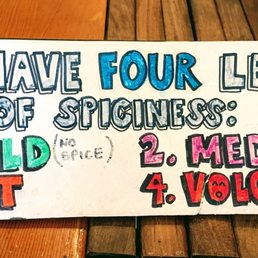 HAVE FOUR LE
OF SPICINESS:
LD (NO SPICE) 2. MED
T 4. VOLC